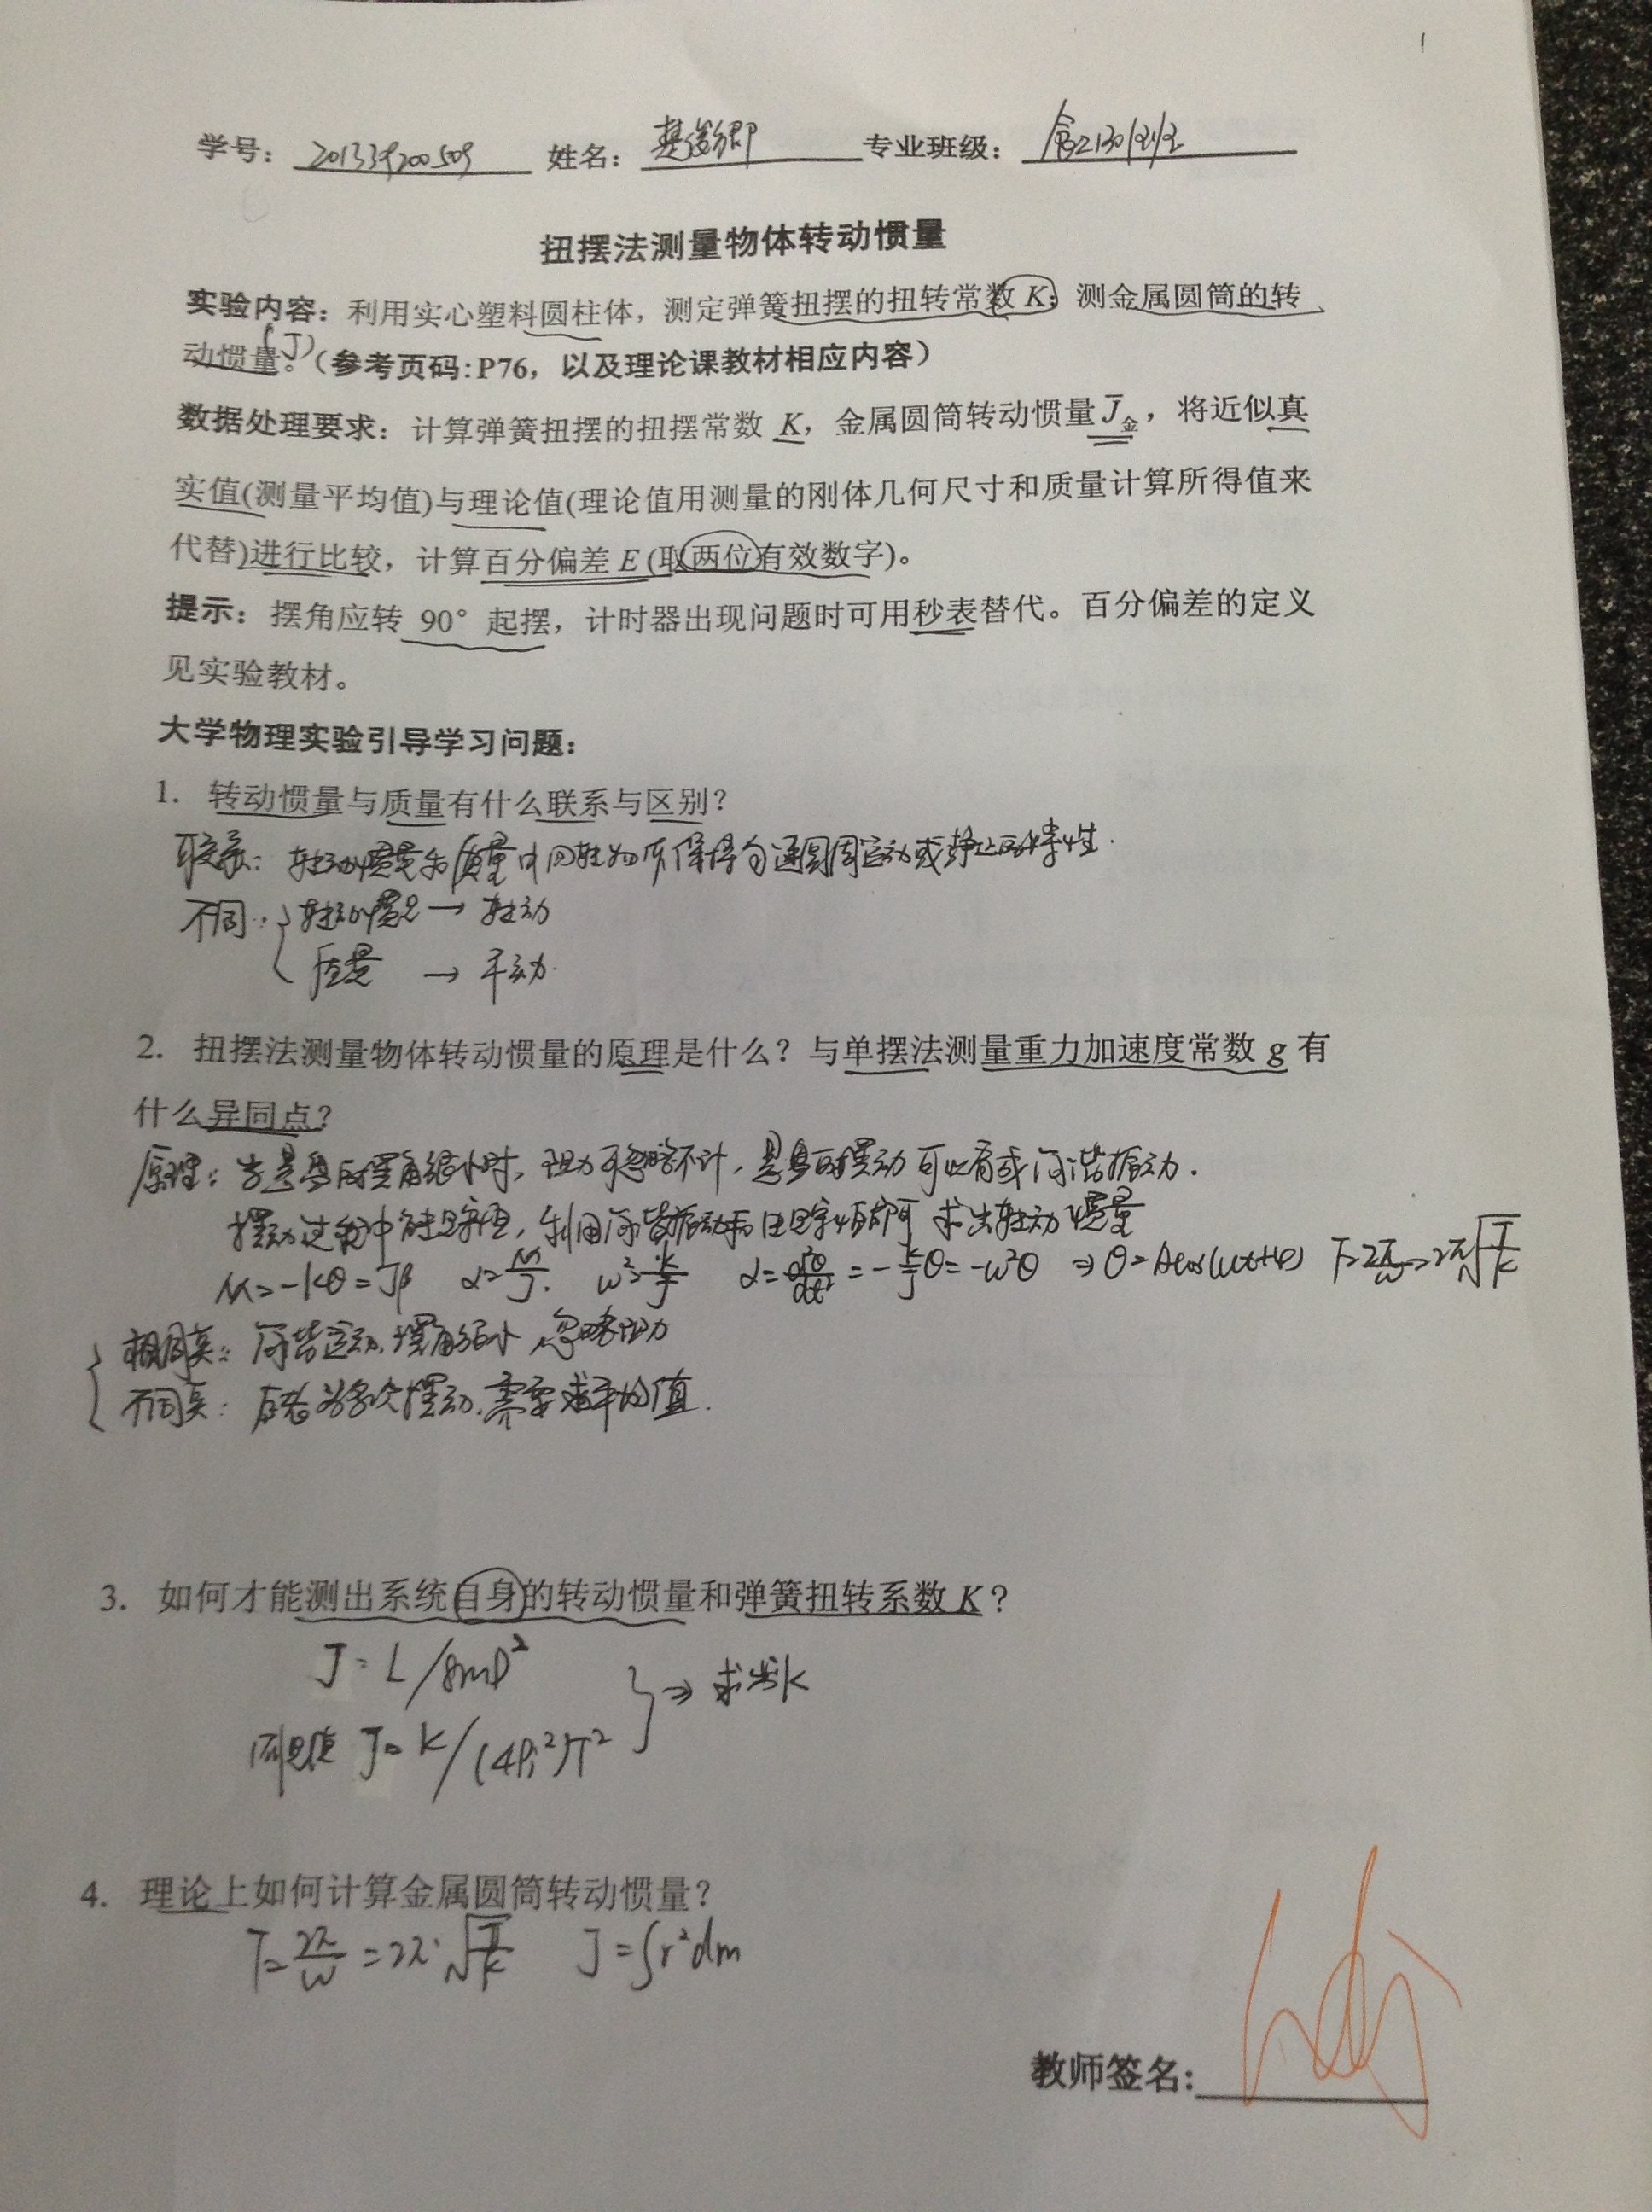 1
学号： 姓名： 专业班级：
扭摆法测量物体转动惯量
实验内容：利用实心塑料圆柱体，测定弹簧扭摆的扭转常数 K；测金属圆筒的转
(J)
动惯量。（参考页码:P76，以及理论课教材相应内容）
数据处理要求：计算弹簧扭摆的扭摆常数 K，金属圆筒转动惯量 J̄金，将近似真
实值(测量平均值)与理论值(理论值用测量的刚体几何尺寸和质量计算所得值来
代替)进行比较，计算百分偏差 E (取两位有效数字)。
提示：摆角应转 90° 起摆，计时器出现问题时可用秒表替代。百分偏差的定义
见实验教材。
大学物理实验引导学习问题：
1. 转动惯量与质量有什么联系与区别？
联系：转动惯量和质量 保持匀速圆周运动或静止的特性.
不同： 转动惯量 → 转动
质量 → 平动.
2. 扭摆法测量物体转动惯量的原理是什么？与单摆法测量重力加速度常数 g 有
什么异同点？
原理：当悬盘的摆角很小时，阻力可忽略不计，悬盘的摆动可以看成简谐振动.
摆动过程中 ，利用简谐振动 求出转动惯量
M=-Kθ=Jβ α=M/J. ω²=K/J α=d²θ/dt²=-K/Jθ=-ω²θ ⇒θ=Acos(ωt+φ) T=2π/ω=2π√(J/K)
相同点：简谐运动，摆角很小 忽略阻力
不同点：后者为多次摆动，需要求平均值.
3. 如何才能测出系统自身的转动惯量和弹簧扭转系数 K？
J=1/8mD²
⇒ 求出K
J=K/(4Pi²)T²
4. 理论上如何计算金属圆筒转动惯量？
T=2π/ω=2π·√(J/K) J=∫r²dm
教师签名: